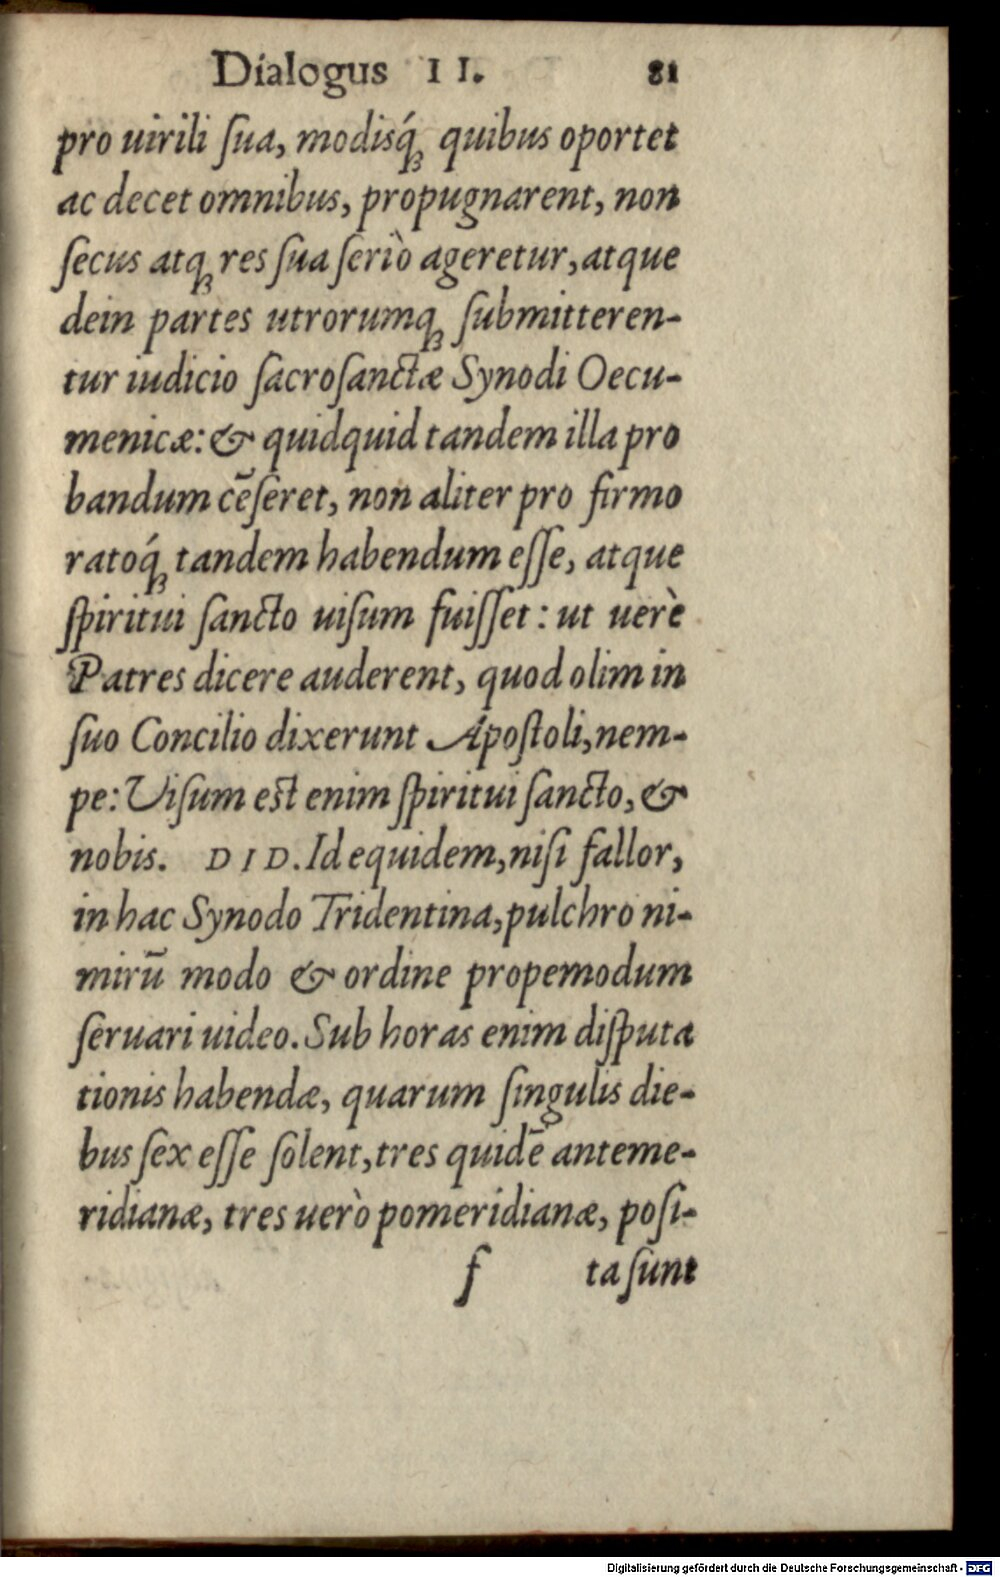 Dialogus II. 81
pro uirili ſua, modisq́ꝫ quibus oportet
ac decet omnibus, propugnarent, non
ſecus atqꝫ res ſua ſeriò ageretur, atque
dein partes utrorumqꝫ ſubmitteren-
tur iudicio ſacroſanctæ Synodi Oecu-
menicæ: & quidquid tandem illa pro
bandum cēſeret, non aliter pro firmo
ratoq́ꝫ tandem habendum eſſe, atque
ſpiritui ſancto uiſum fuiſſet: ut uerè
Patres dicere auderent, quod olim in
ſuo Concilio dixerunt Apoſtoli, nem-
pe: Viſum eſt enim ſpiritui ſancto, &
nobis. DID. Id equidem, niſi fallor,
in hac Synodo Tridentina, pulchro ni-
mirū modo & ordine propemodum
ſeruari uideo. Sub horas enim diſputa
tionis habendæ, quarum ſingulis die-
bus ſex eſſe ſolent, tres quidē anteme-
ridianæ, tres uerò pomeridianæ, poſi-
f ta ſunt
Digitalisierung gefördert durch die Deutsche Forschungsgemeinschaft - DFG